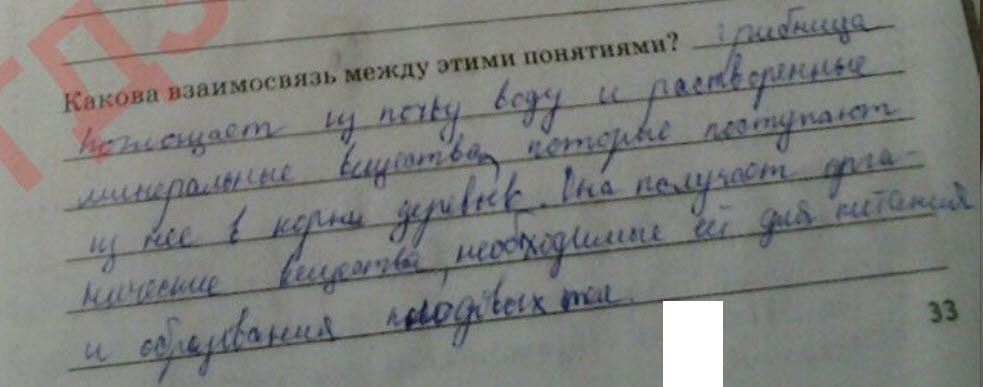 ГДЗ
Какова взаимосвязь между этими понятиями? грибница
поглощает из почвы воду и растворенные
минеральные вещества, которые поступают
из нее в корни деревьев. Она получает орга-
нические вещества, необходимые ей для питания
и образования плодовых тел.
33